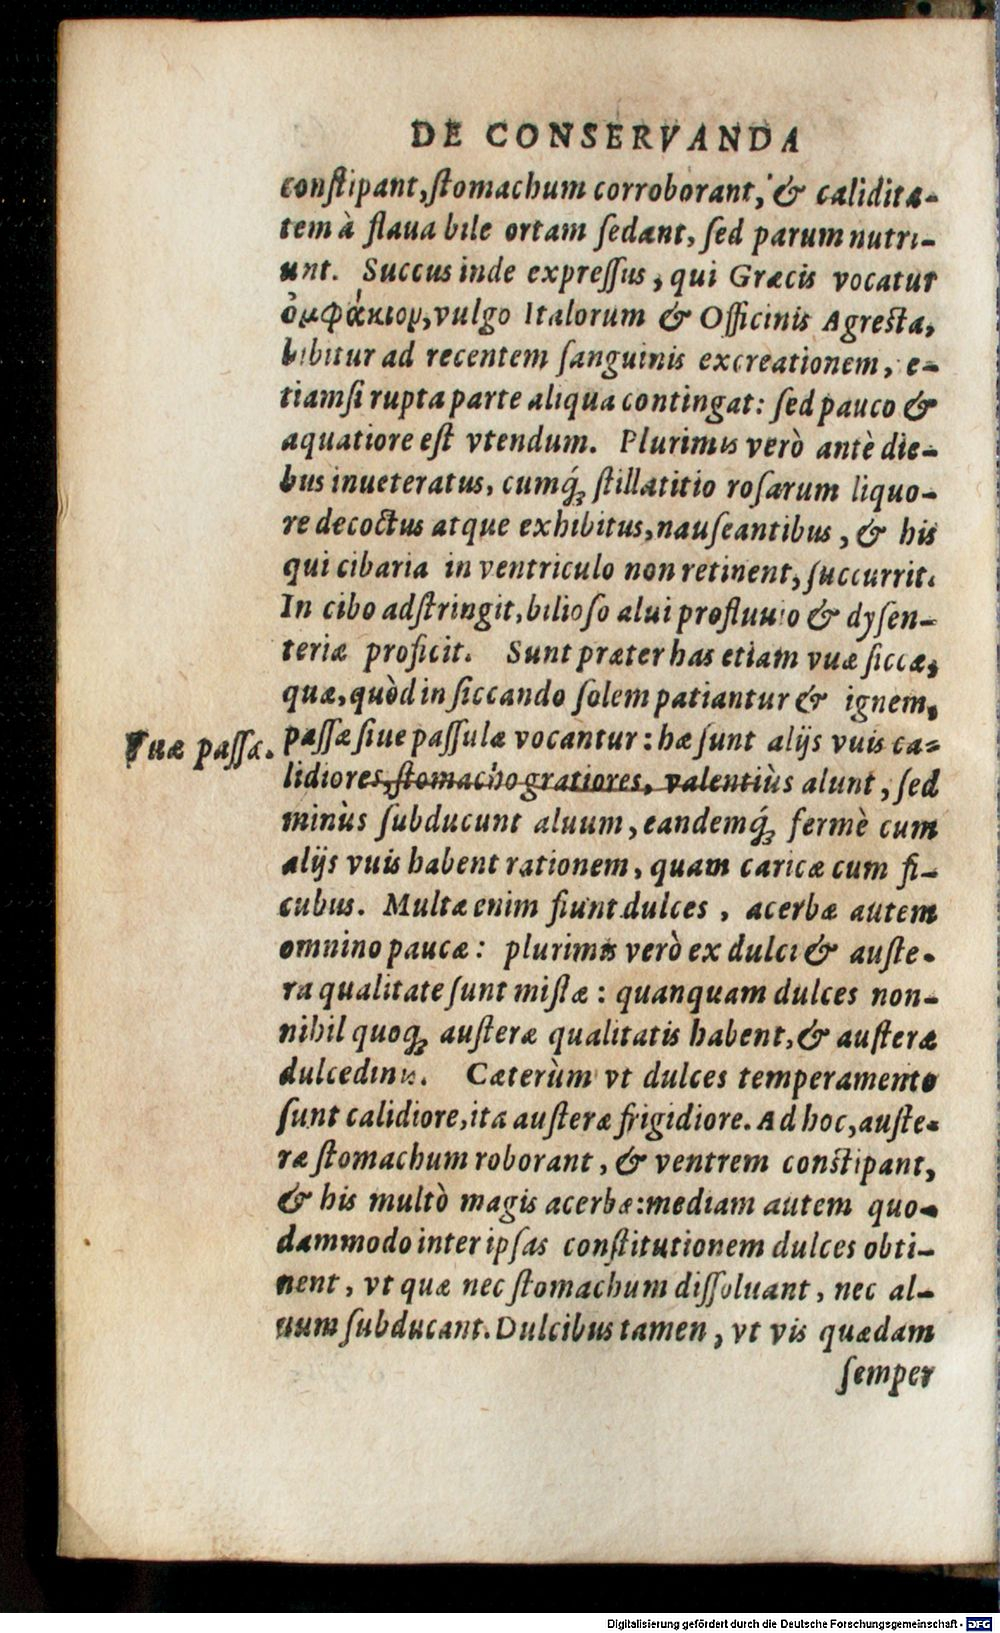 DE CONSERVANDA
conſtipant, ſtomachum corroborant, & calidita-
tem à flaua bile ortam ſedant, ſed parum nutri-
unt. Succus inde expreſſus, qui Græcis vocatur
ὀμφάκιον, vulgo Italorum & Officinis Agresta,
bibitur ad recentem ſanguinis excreationem, e-
tiamſi rupta parte aliqua contingat: ſed pauco &
aquatiore eſt vtendum. Plurimis verò antè die-
bus inueteratus, cumq́ꝫ ſtillatitio roſarum liquo-
re decoctus atque exhibitus, nauſeantibus, & his
qui cibaria in ventriculo non retinent, ſuccurrit.
In cibo adſtringit, bilioſo alui profluuio & dyſen-
teriæ proficit. Sunt præter has etiam vuæ ſiccæ,
quæ, quòd in ſiccando ſolem patiantur & ignem,
Vuæ paſſæ.
paſſæ ſiue paſſulæ vocantur: hæ ſunt alijs vuis ca-
lidiores, ſtomacho gratiores, valentiùs alunt, ſed
minùs ſubducunt aluum, eandemq́ꝫ fermè cum
alijs vuis habent rationem, quam caricæ cum fi-
cubus. Multæ enim fiunt dulces, acerbæ autem
omnino paucæ: plurimis verò ex dulci & auſte-
ra qualitate ſunt miſtæ: quanquam dulces non-
nihil quoqꝫ auſteræ qualitatis habent, & auſteræ
dulcedinis. Cæterùm vt dulces temperamento
ſunt calidiore, ita auſteræ frigidiore. Ad hoc, auſte-
ræ ſtomachum roborant, & ventrem constipant,
& his multò magis acerbæ: mediam autem quo-
dammodo inter ipſas conſtitutionem dulces obti-
nent, vt quæ nec ſtomachum diſſoluant, nec al-
uum ſubducant. Dulcibus tamen, vt vis quædam
ſemper
Digitalisierung gefördert durch die Deutsche Forschungsgemeinschaft - DFG